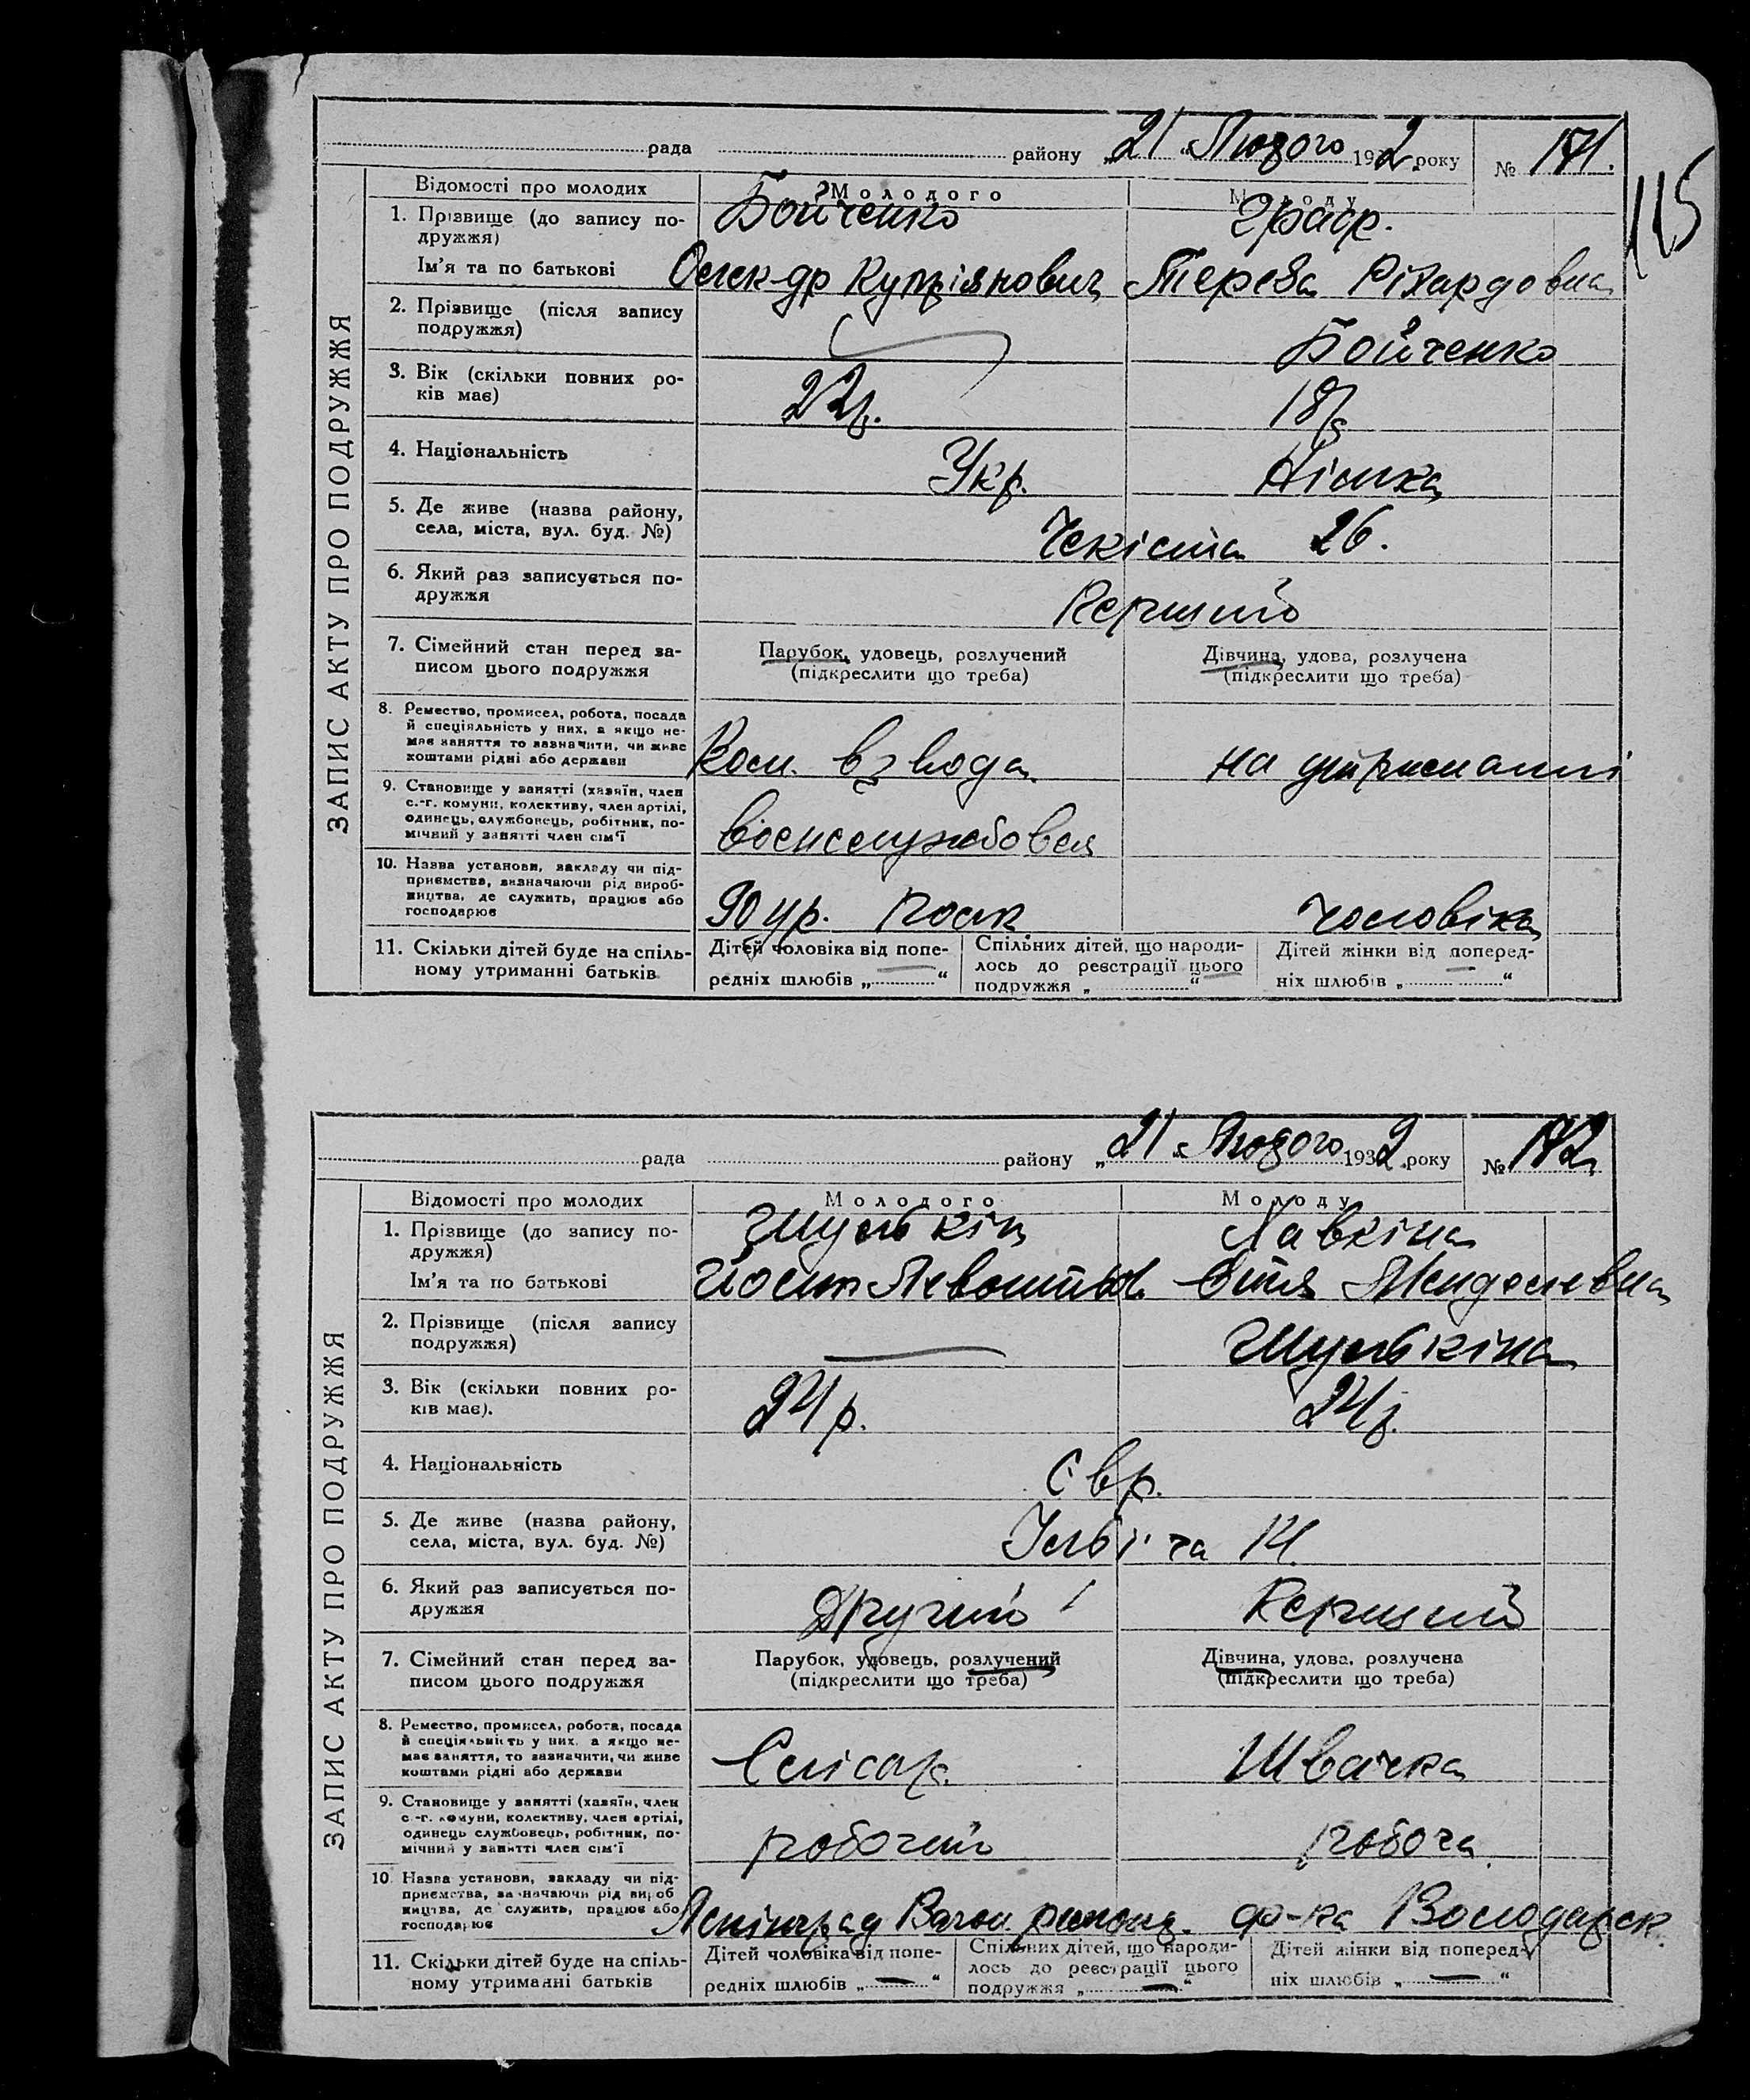 рада району „21“ Лютого 1932 року № 171.
115
ЗАПИС АКТУ ПРО ПОДРУЖЖЯ
Відомості про молодих Молодого Молоду
1. Прізвище (до запису по- Бойченко Граф.
дружжя)
Ім’я та по батькові Олек-др Купріянович Тереза Ріхардовна
2. Прізвище (після запису
подружжя) Бойченко
3. Вік (скільки повних ро- 22р. 18р
ків має)
4. Національність Укр. Німка
5. Де живе (назва району,
села, міста, вул. буд. №) Чекіста 26.
6. Який раз записується по-
дружжя Перший
7. Сімейний стан перед за- Парубок, удовець, розлучений Дівчина, удова, розлучена
писом цього подружжя (підкреслити що треба) (підкреслити що треба)
8. Ремество, промисел, робота, посада
й спеціяльність у них, а якщо не-
має заняття то зазначити, чи живе Ком. взвода на утриманні
коштами рідні або держави
9. Становище у занятті (хазяїн, член
с.-г. комуни, колективу, член артілі,
одинець, службовець, робітник, по- військслужбовец
мічний у занятті член сім’ї
10. Назва установи, закладу чи під-
приємства, визначаючи рід вироб-
ництва, де служить, працює або 90 ур. полк чоловіка
господарює
11. Скільки дітей буде на спіль- Дітей чоловіка від попе- Спільних дітей, що народи- Дітей жінки від поперед-
ному утриманні батьків редніх шлюбів „ “ лось до реєстрації цього ніх шлюбів „ “
подружжя „ “
рада району „21“ Лютого 1932 року № 172
ЗАПИС АКТУ ПРО ПОДРУЖЖЯ
Відомості про молодих Молодого Молоду
1. Прізвище (до запису по- Шулькін Лавкіна
дружжя)
Ім’я та по батькові Йосип Менделевна
2. Прізвище (після запису
подружжя) — Шулькіна
3. Вік (скільки повних ро- 24р. 24р.
ків має).
4. Національність Євр.
5. Де живе (назва району,
села, міста, вул. буд. №) Ілліча 14.
6. Який раз записується по-
дружжя Другий Перший
7. Сімейний стан перед за- Парубок, удовець, розлучений Дівчина, удова, розлучена
писом цього подружжя (підкреслити що треба) (підкреслити що треба)
8. Ремество, промисел, робота, посада
й спеціяльність у них, а якщо не-
має заняття, то зазначити, чи живе Слісар. Швачка
коштами рідні або держави
9. Становище у занятті (хазяїн, член
с.-г. комуни, колективу, член артілі,
одинець службовець, робітник, по- робочий робоча
мічний у занятті член сім’ї
10. Назва установи, закладу чи під-
приємства, зазначаючи рід вироб
ництва, де служить, працює або Ленінград Вагон. ремонт. ф-ка Володарск.
господарює
11. Скільки дітей буде на спіль- Дітей чоловіка від попе- Спільних дітей, що народи- Дітей жінки від поперед-
ному утриманні батьків редніх шлюбів „—“ лось до реєстрації цього ніх шлюбів „—“
подружжя „—“